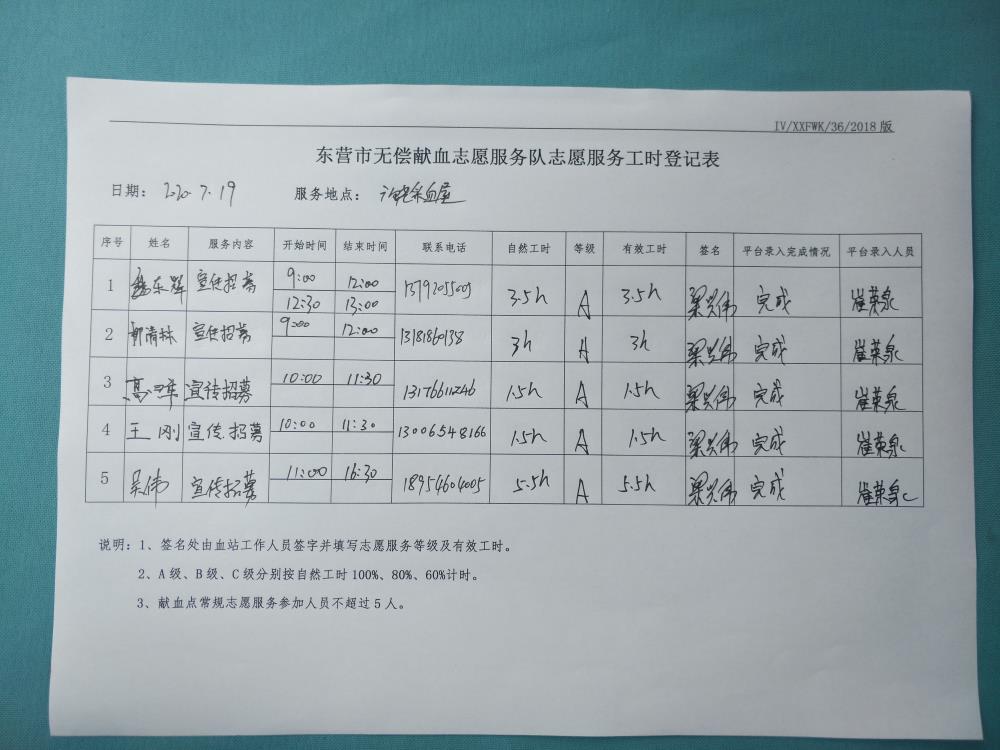 IV/XXFWK/36/2018 版
东营市无偿献血志愿服务队志愿服务工时登记表
日期： 2020.7.19 服务地点： 献血屋
序号 姓名 服务内容 开始时间 结束时间 联系电话 自然工时 等级 有效工时 签名 平台录入完成情况 平台录入人员
1 东辉 宣传招募 9:00 12:00 1379205509 3.5h A 3.5h 梁兴伟 完成 崔英泉
12:30 13:00
2 郭清林 宣传招募 9:00 12:00 13181860138 3h A 3h 梁兴伟 完成 崔英泉
3 高 宣传招募 10:00 11:30 13176611246 1.5h A 1.5h 梁兴伟 完成 崔英泉
4 王刚 宣传招募 10:00 11:30 13006548166 1.5h A 1.5h 梁兴伟 完成 崔英泉
5 吴伟 宣传招募 11:00 16:30 18954604005 5.5h A 5.5h 梁兴伟 完成 崔英泉
说明：1、签名处由血站工作人员签字并填写志愿服务等级及有效工时。
2、A 级、B 级、C 级分别按自然工时 100%、80%、60%计时。
3、献血点常规志愿服务参加人员不超过 5 人。